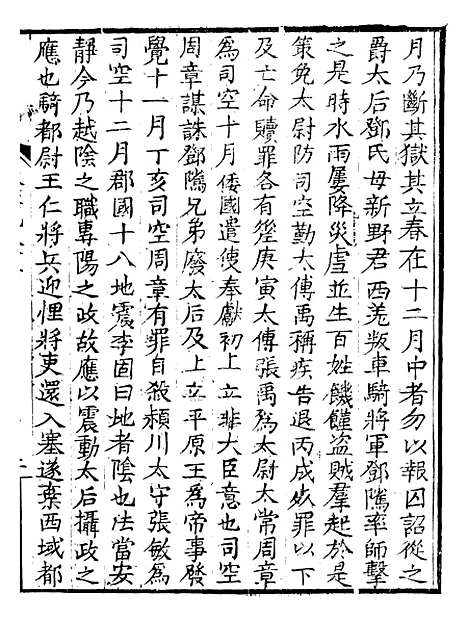 月乃斷其獄其立春在十二月中者勿以報囚詔從之
爵太后鄧氏母新野君西羌叛車騎將軍鄧隲率師擊
之是時水雨屢降災虐並生百姓饑饉盜賊羣起於是
策免太尉防司空勤太傅禹稱疾告退丙戌死罪以下
及亡命贖罪各有差庚寅太傅張禹為太尉太常周章
為司空十月倭國遣使奉獻初上立非大臣意也司空
周章謀誅鄧隲兄弟廢太后及上立平原王為帝事發
覺十一月丁亥司空周章有罪自殺潁川太守張敏為
司空十二月郡國十八地震李固曰地者陰也法當安
靜今乃越陰之職專陽之政故應以震動太后攝政之
應也騎都尉王仁將兵迎悝將吏還入塞遂棄西域都